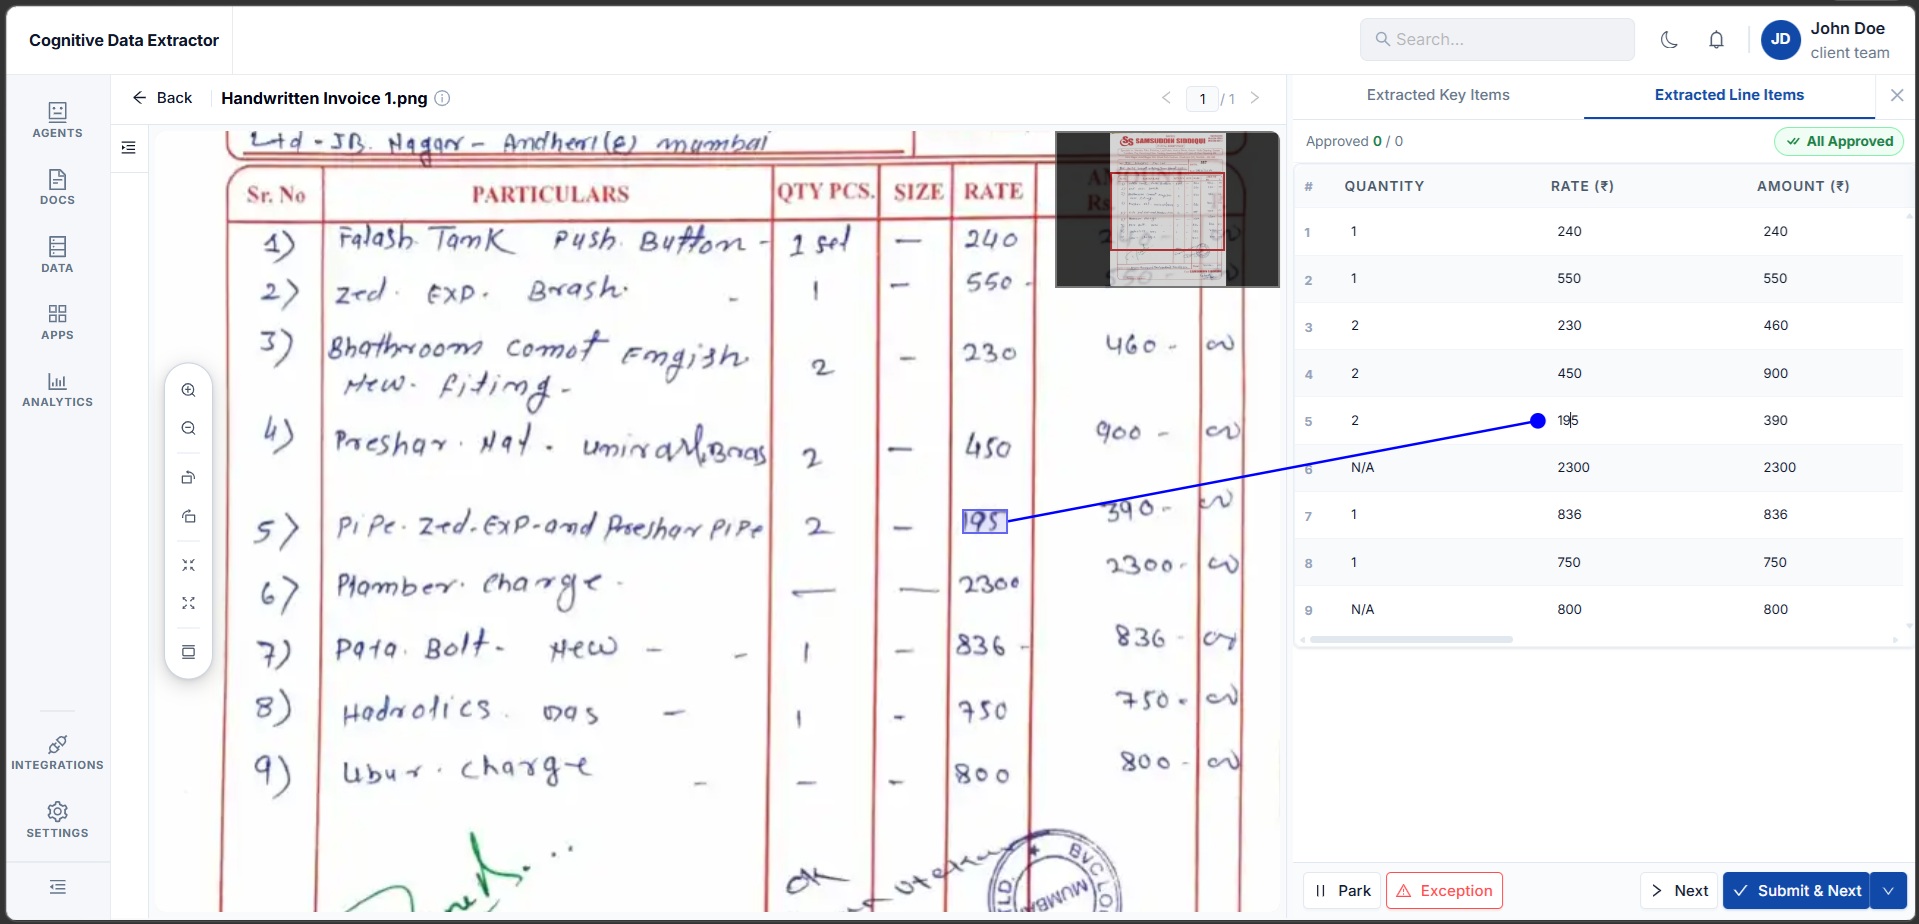 Cognitive Data Extractor
Search...
JD
John Doe
client team
AGENTS
DOCS
DATA
APPS
ANALYTICS
INTEGRATIONS
SETTINGS
Back
Handwritten Invoice 1.png
1 / 1
Ltd - JB. Nagar - Andheri (E) mumbai
Sr. No PARTICULARS QTY PCS. SIZE RATE
1) Falash Tamk Push. Button - 1 set — 240
2) Zed. EXP. Brash. - 1 — 550 -
3) Bhathroom comot Emgish 2 — 230 460 -
New. fiting -
4) Preshar. Nat. 2 — 450 900 -
5) PiPe. Zed. EXP-and Preshar PiPe 2 — 195 390 -
6) Plamber. Charge - — — 2300 2300 -
7) Pata. Bolt - New - - 1 — 836 - 836 -
8) Hadrolics. Das — 1 - 750 750 -
9) Ubur. Charge - — - 800 800 -
OK
BVC LO
MUMBA
LTD.
SS SAMSUDDIN SIDDIQUI
Extracted Key Items
Extracted Line Items
Approved 0 / 0
All Approved
# QUANTITY RATE (₹) AMOUNT (₹)
1 1 240 240
2 1 550 550
3 2 230 460
4 2 450 900
5 2 195 390
6 N/A 2300 2300
7 1 836 836
8 1 750 750
9 N/A 800 800
Park
Exception
Next
Submit & Next